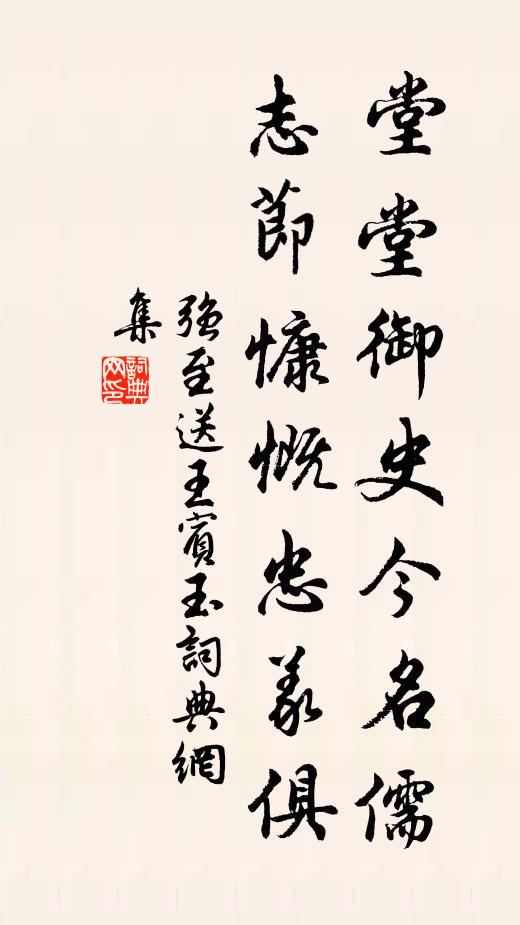 堂堂御史今名儒
志節慷慨忠義俱
強至送王賓玉詞典網
集
詞典
网印